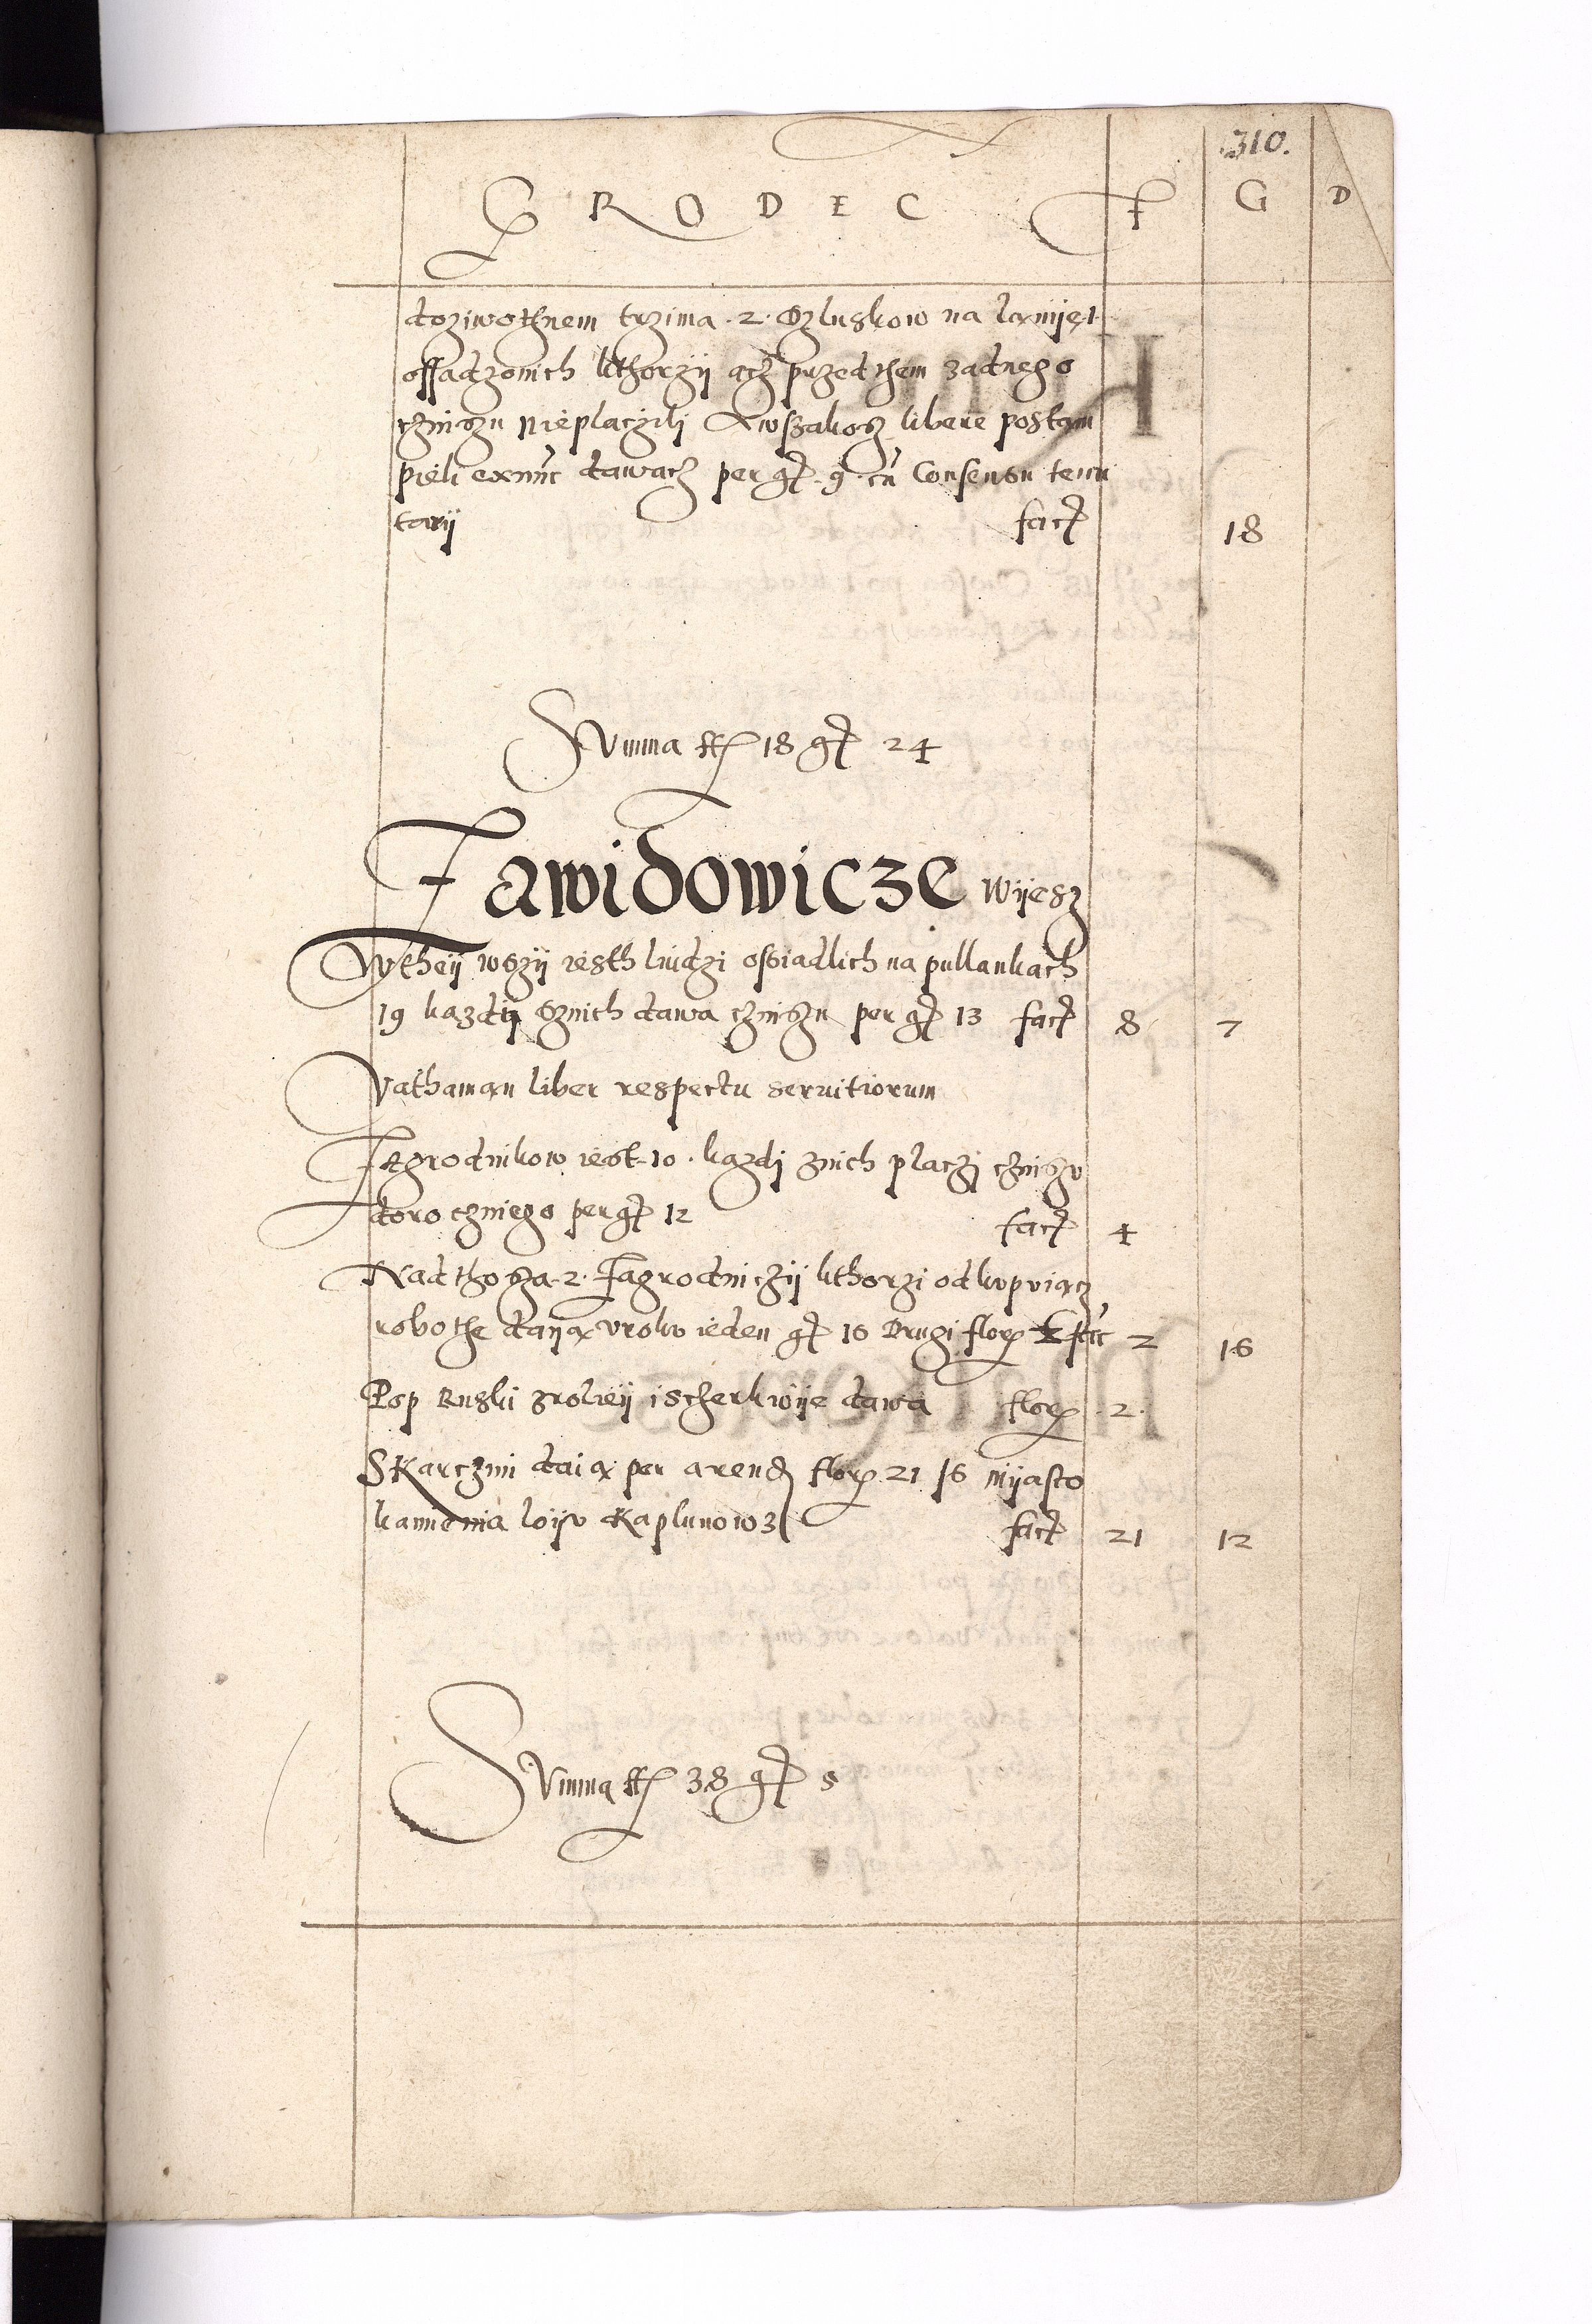 310.
GRODEC F G D
doziwothnem trzima .2. Czluskow na lanije 1
ossadzonich kthorzij acz przedthem zadnego
czinszu nieplaczili Awszakosz libere postam
pieli exnunc dawacz per gr 9 cu Consensu tenu
tarij fact 18
Summa fl 18 gr 24
Zawidowicze Wijesz
Wtheij wszij iesth liudzi ossiadlich na pullankach
19 kazdij sznich dawa czinszu per gr 13 fact 8 7
Vathaman liber respectu seruitiorum
Zagrodnikow iest 10 . kazdj znich placzj czinszu
doroczniego per gr 12 fact 4
Nadtho sza .2. Zagrodniczij kthorzi odkupviącz
robothe daija vroku ieden gr 16 Drugi flor 2 fac 2 16
Pop Ruski zrolieij ischerkwije dawa flor .2.
SKarczmi daia per arend flor 21 /6 mijasto
kamienia loiju Kaplunow 3 fact 21 12
Summa fl 38 gr 5